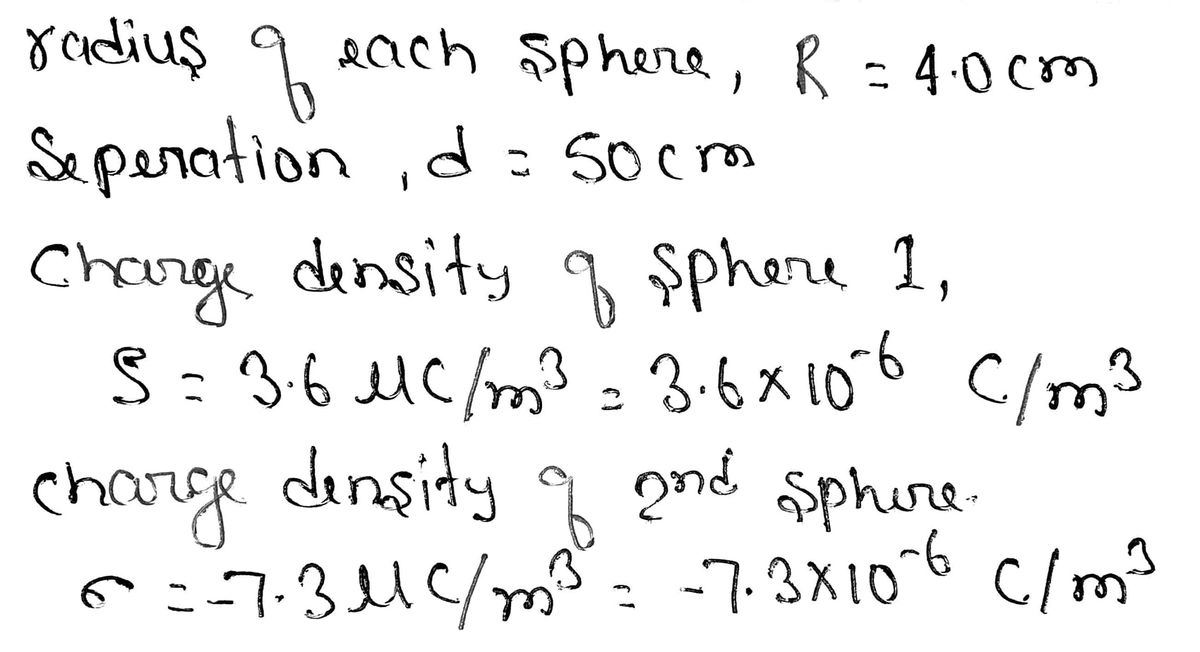 radius of each sphere, R = 4.0 cm
Seperation, d = 50 cm
Charge density of sphere 1,
S = 3.6 μC/m³ = 3.6 × 10⁻⁶ C/m³
charge density of 2nd sphere.
σ = -7.3 μC/m³ = -7.3 × 10⁻⁶ C/m³